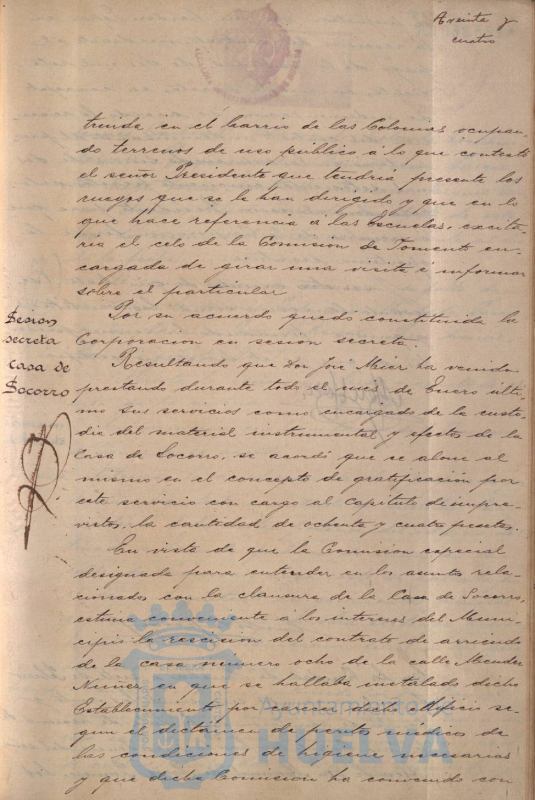 treinta y
cuatro
truida en el barrio de las Colonias ocupan-
do terrenos de uso público á lo que contestó
el señor Presidente que tendria presente los
ruegos que se le han dirigido y que en lo
que hace referencia á las Escuelas, excita-
ria el celo de la Comision de Fomento en-
cargada de girar una visita é informar
sobre el particular.
Sesion
secreta
Por su acuerdo quedó constituida la
Corporacion en sesion secreta.
Casa de
Socorro
Resultando que Don José Mier ha venido
prestando durante todo el mes de Enero últi-
mo sus servicios como encargado de la custo-
dia del material instrumental y efectos de la
Casa de Socorro, se acordó que se abone al
mismo en el concepto de gratificacion por
este servicio con cargo al Capitulo de impre-
vistos, la cantidad de ochenta y cuatro pesetas.
En vista de que la Comision especial
designada para entender en los asuntos rela-
cionados con la clausura de la Casa de Socorro,
estima conveniente á los intereses del Muni-
cipio la rescision del contrato de arriendo
de la casa número ocho de la calle Mendez
Nuñez en que se hallaba instalado dicho
Establecimiento por carecer dicho edificio se-
gun el dictámen de peritos médicos de
las condiciones de higiene necesarias
y que dicha Comision ha convenido con
Ayuntamiento
HUELVA